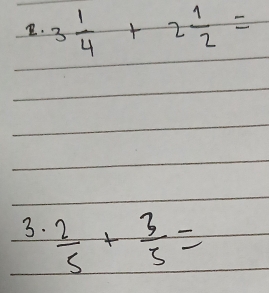 2. 3 1/4 + 2 1/2 =
3. 2/5 + 3/5 =